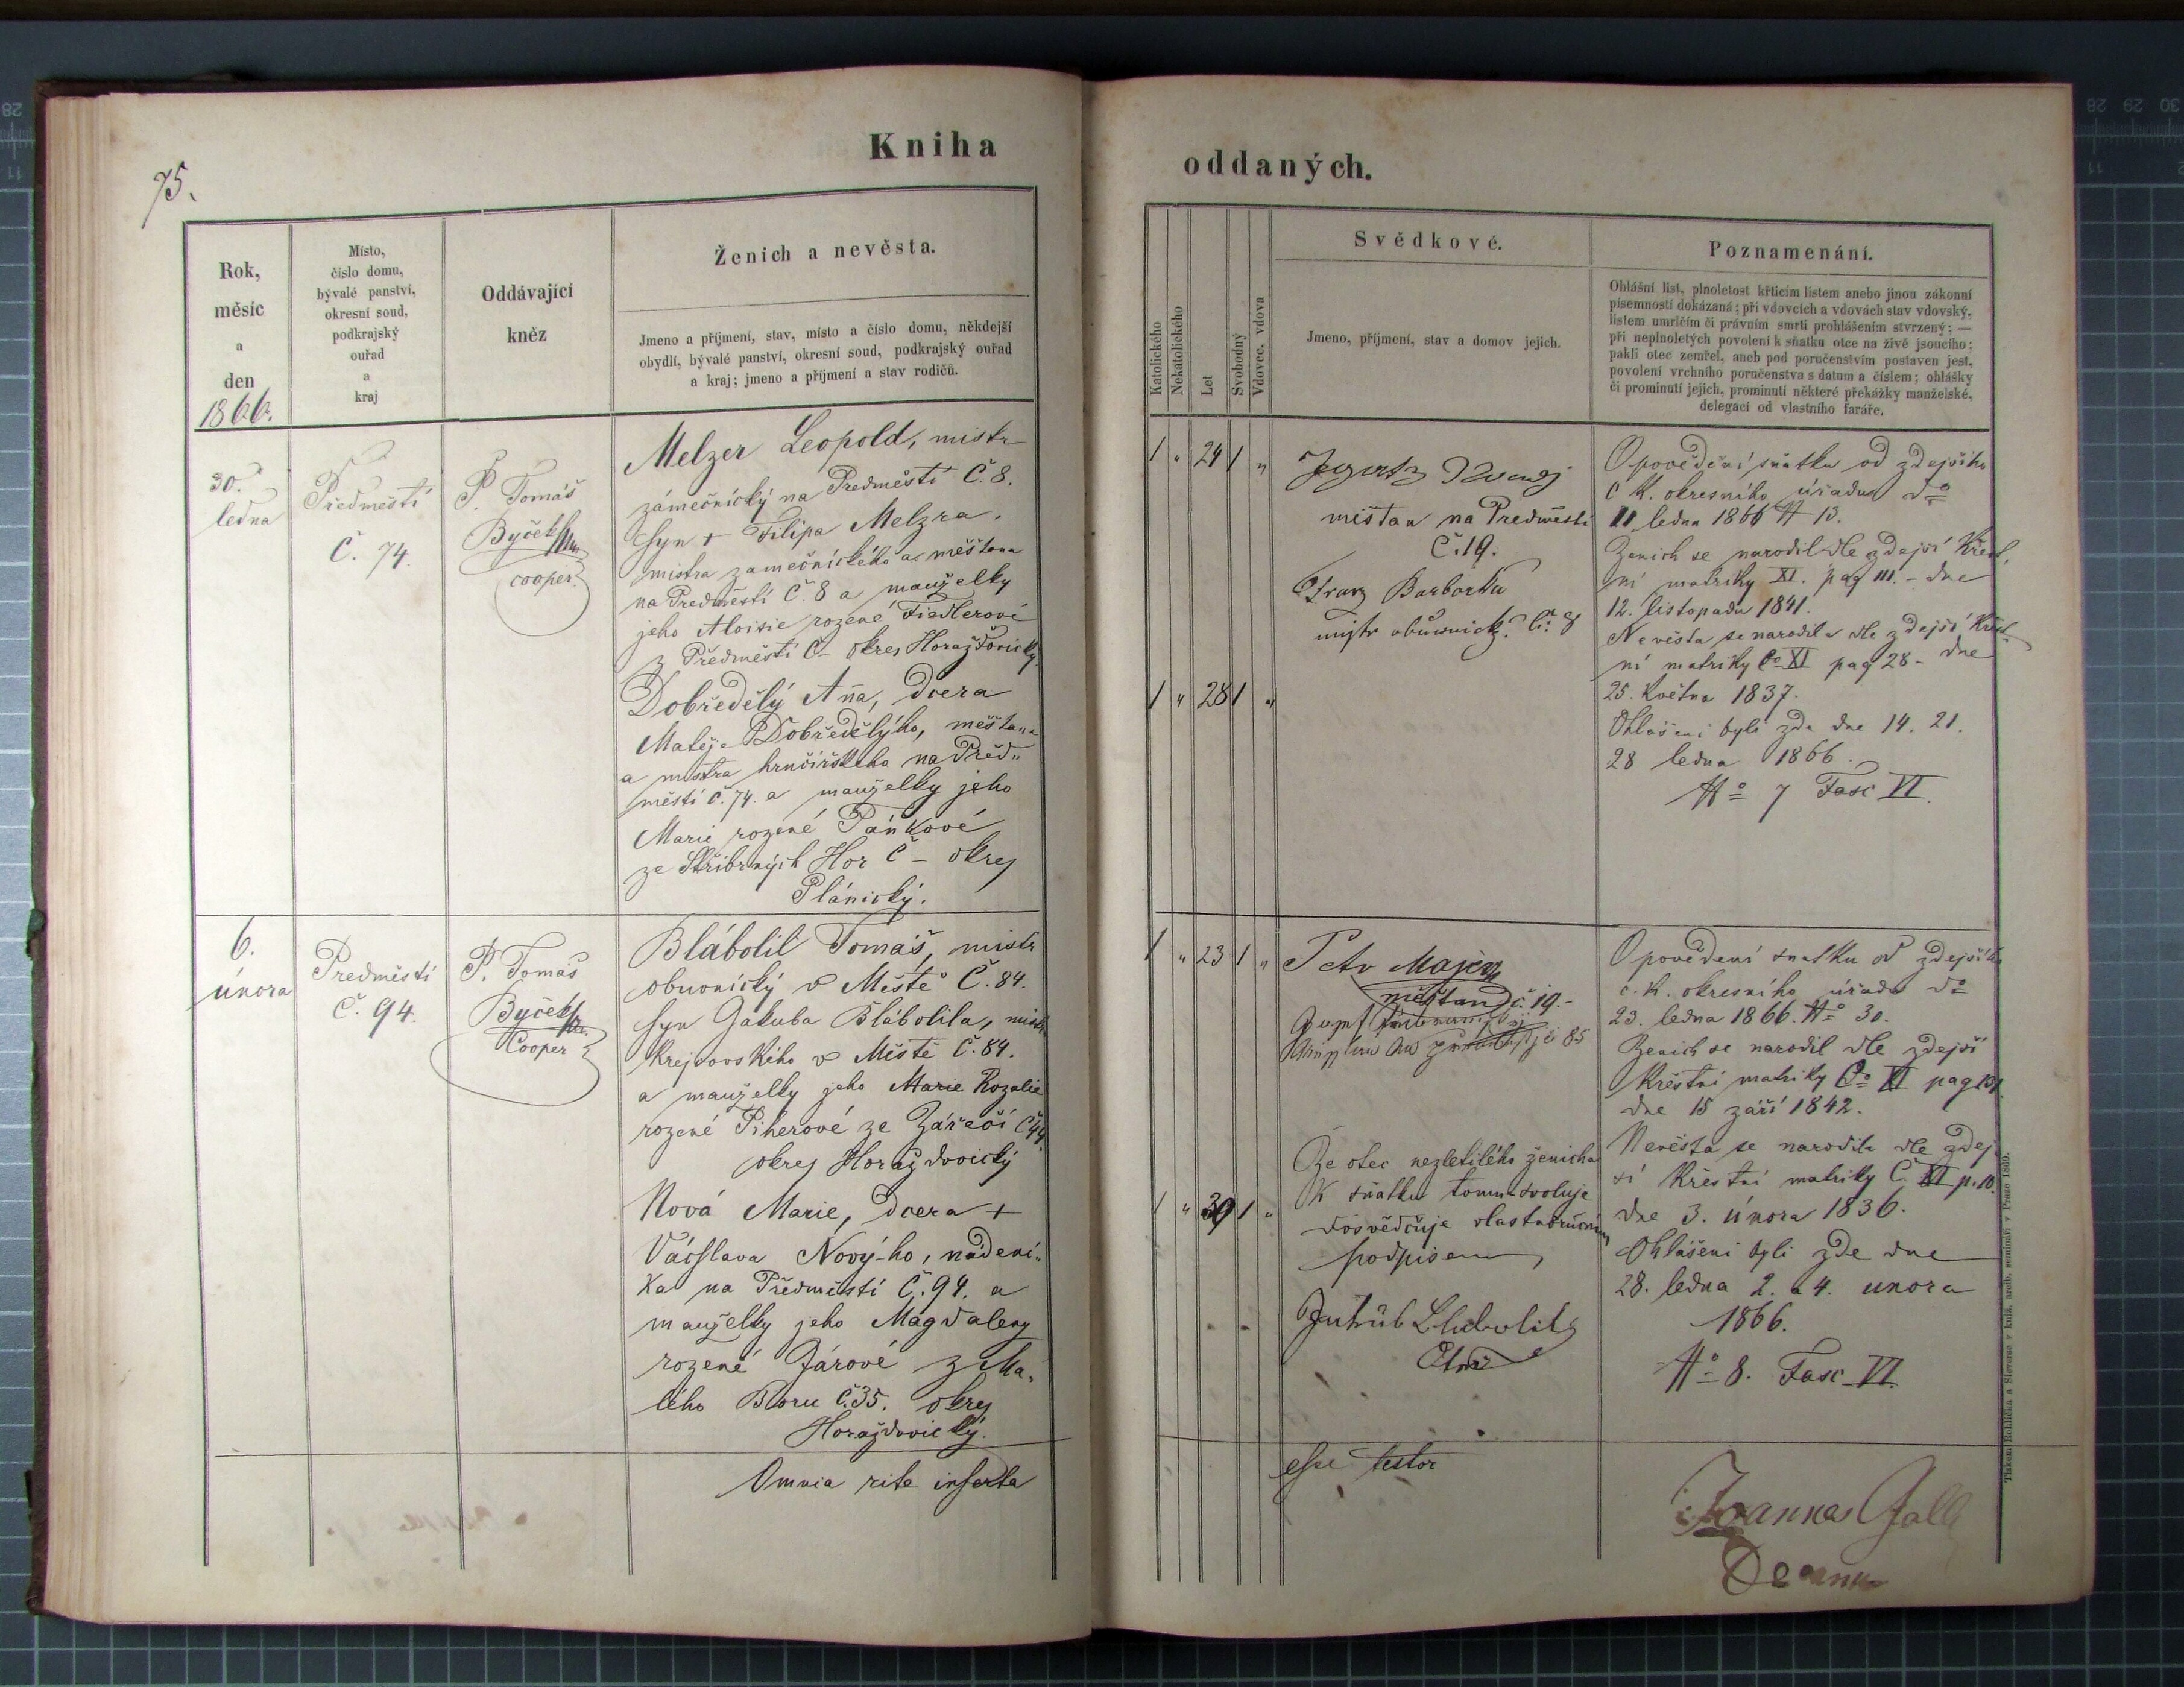 75.
Kniha
oddaných.
Rok,
měsíc
a
den
1866.
Místo,
číslo domu,
bývalé panství,
okresní soud,
podkrajský
ouřad
a
kraj
Oddávající
kněz
Ženich a nevěsta.
Jmeno a příjmení, stav, místo a číslo domu, někdejší
obydlí, bývalé panství, okresní soud, podkrajský ouřad
a kraj; jmeno a příjmení a stav rodičů.
Katolického
Nekatolického
Let
Svobodný
Vdovec, vdova
Svědkové.
Jmeno, příjmení, stav a domov jejich.
Poznamenání.
Ohlášní list, plnoletost křticím listem anebo jinou zákonní
písemností dokázaná; při vdovcích a vdovách stav vdovský,
listem umrlčím či právním smrti prohlášením stvrzený; —
při neplnoletých povolení k sňatku otce na živě jsoucího;
pakli otec zemřel, aneb pod poručenstvím postaven jest,
povolení vrchního poručenstva s datum a číslem; ohlášky
či prominutí jejich, prominutí některé překážky manželské,
delegací od vlastního faráře.
30.
ledna
Předměstí
Č. 74.
P. Tomáš
Byček
cooper.
Melzer Leopold, mistr
zámečnický na Předměstí Č. 8.
syn + Filipa Melzra,
mistra zamečnického a měštana
na Předměstí Č. 8 a manželky
jeho Aloisie rozené Fiedlerové
z Předměstí Č – okres Horažďovický.
Dobředělý Anna, dcera
Matěje Dobředělýho, měštana
a mistra hrnčířského na Před„
městí č. 74. a manželky jeho
Marie rozené Pánkové
ze Stříbrných Hor č – okres
Plánický.
1 „ 24 1 „
1 „ 28 1 „
měštan na Předměstí
Č. 19.
Franz Barborka
mistr obuwnický Č. 8
Opovědění sňatku od zdejšího
c k. okresního úřadu do
11 ledna 1866 No 13.
Ženich se narodil dle zdejší Křest„
ní matriky XI. pag 111. – dne
12. listopadu 1841.
Nevěsta se narodila dle zdejší Křest„
ní matriky Co XI pag 28 – dne
25. Května 1837.
Ohlášeni byli zde dne 14. 21.
28 ledna 1866.
No 7 Fasc VI.
6.
února
Předměstí
Č. 94.
P. Tomáš
Byček
Cooper
Blábolil Tomáš, mistr
obuvnický v Městě Č. 84.
syn Jakuba Blábolila, mistra
krejčovského v Městě Č. 84.
a manželky jeho Marie Rozalie
rozené Piherové ze Zářečí č 44.
okres Horažďovický
Nová Marie, dcera +
Václava Nový-ho, nádení„
ka na Předměstí Č. 94. a
manželky jeho Magdaleny
rozené Járové z Ma„
lého Boru č. 35. okres
Horažďovický.
Omnia rite inserta
1 „ 23 1 „
1 „ 30 1 „
Petr Majer
měštan č. 19. –
Že otec nezletilého ženicha
k sňatku tomu svoluje
dosvědčuje vlastnoručním
podpisem,
Otec
esse testor
Opovědení snatku od zdejšího
c. k. okresního úřadu do
23. ledna 1866. No 30.
Ženich se narodil dle zdejší
Křestní matriky Co XI pag 131
dne 15 září 1842.
Nevěsta se narodila dle zdej„
ší Křestní matriky Č. XI p. 10.
dne 3. února 1836.
Ohlášeni byli zde dne
28. ledna 2. a 4. února
1866.
No 8. Fasc VI.
Joannes Galli
Decanus